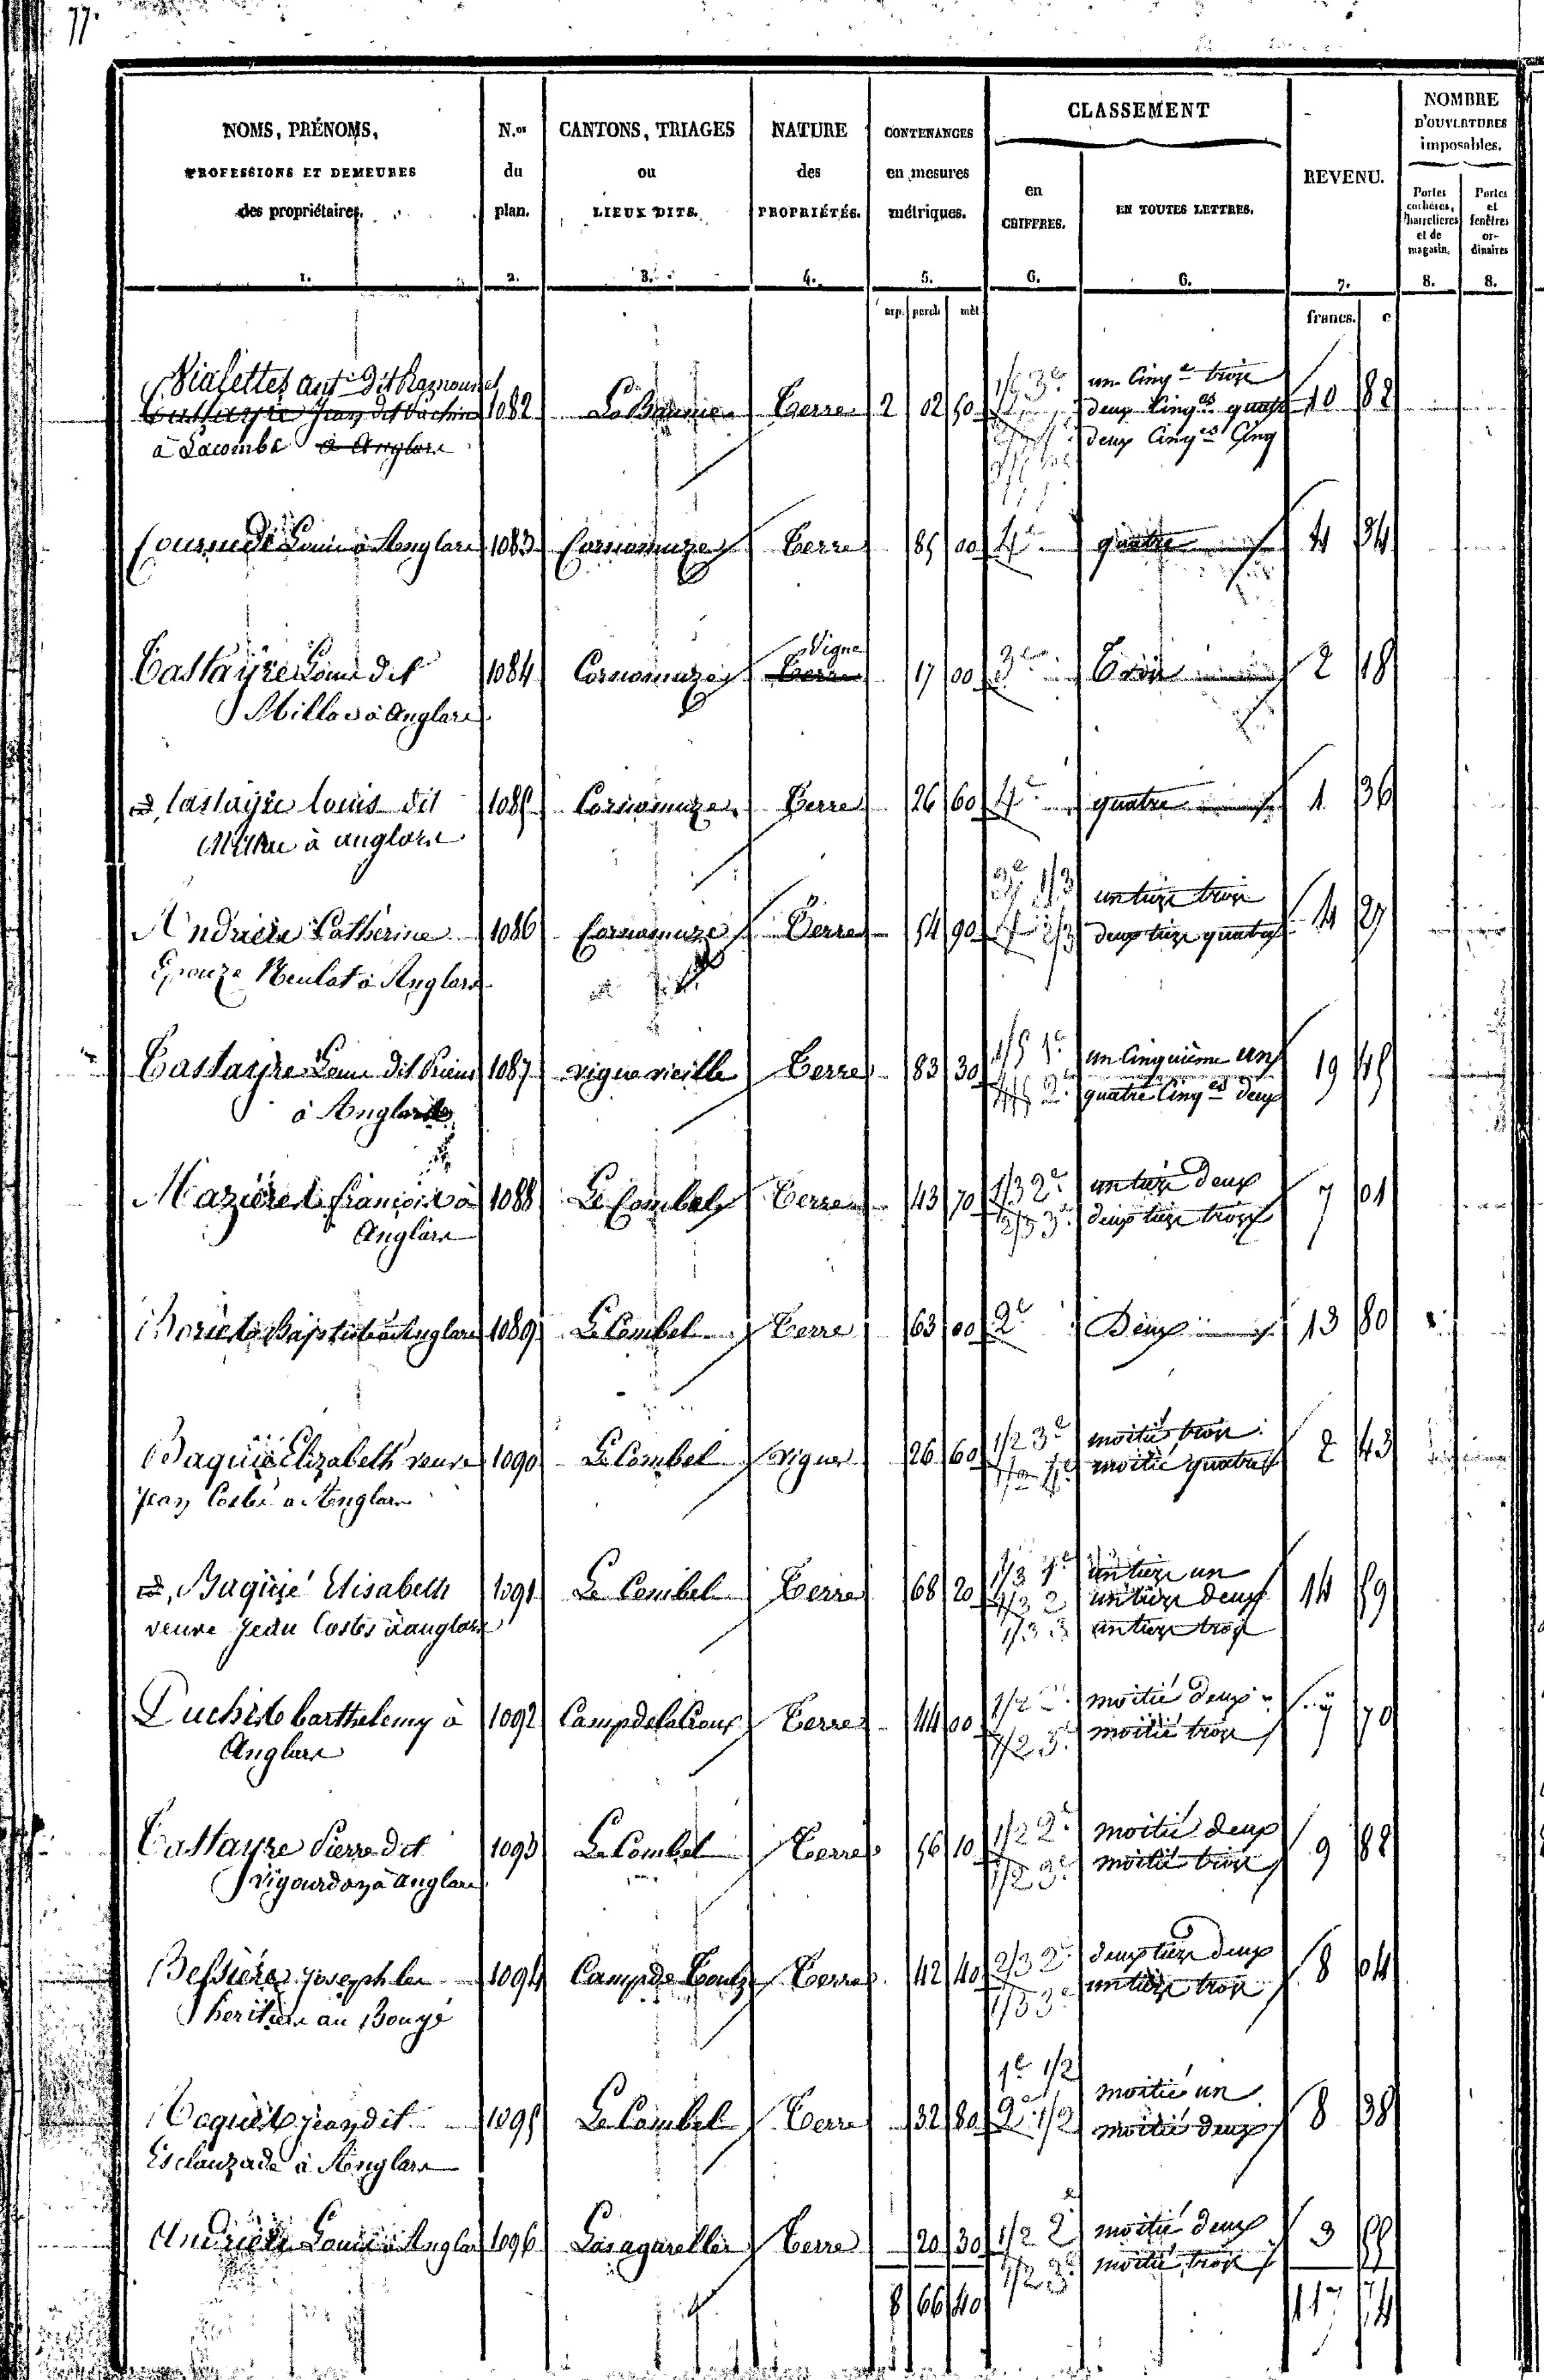 77.
NOMS, PRÉNOMS, PROFESSIONS ET DEMEURES des propriétaires. 1.
N.os du plan. 2.
CANTONS, TRIAGES ou LIEUX DITS. 3.
NATURE des PROPRIÉTÉS. 4.
CONTENANCES en mesures métriques. 5.
CLASSEMENT
en CHIFFRES. 6.
EN TOUTES LETTRES. 6.
REVENU. 7.
NOMBRE D'OUVERTURES imposables.
Portes cochères, charretières et de magasin. 8.
Portes et fenêtres ordinaires 8.
arp. perch mèt
francs. c
Vialettes ant.e dit
Jean dit 1082 Terre 2 02 50 1/5 3e un Cinq.e trois 10 82
deux Cinq.es quatre
à Lacombe à Anglars deux Cinq.es Cinq
Louis à Anglars 1083 Cornomuze Terre 85 00 4e quatre 4 34
Castayre Louis dit 1084 Cornomuze Terre Vigne 17 00 3e Trois 2 18
Millau à Anglars
id, Castayre Louis dit 1085 Cornomuze Terre 26 60 4e quatre 1 36
Millau à anglars
Andrieu Catherine 1086 Cornomuze Terre 54 90 3e 1/3 un tiers trois 4 27
4e 2/3 deux tiers quatre
Epouze à Anglars
Castayre Louis dit 1087 vigne vieille Terre 83 30 1/5 1e un Cinquième un 19 45
à Anglars 4/5 2e quatre Cinq.es deux
Mazières françois à 1088 Le Combel Terre 43 70 1/3 2e un tiers deux 7 01
Anglars 2/3 3e deux tiers trois
Baptiste à Anglars 1089 Le Combel Terre 63 00 2e Deux 13 80
Baquié Elizabeth veuve 1090 Le Combel vigne 26 60 1/2 3e moitié trois 2 43
Jean Costes à Anglars 1/2 4e moitié quatre
id, Baquié Elisabeth 1091 Le Combel Terre 68 20 1/3 1e un tiers un 14 59
1/3 2 un tiers deux
veuve Jean Costes à anglars 1/3 3 un tiers trois
barthelemy à 1092 Camp de la Croux Terre 44 00 1/2 2e moitié deux 7 70
Anglars 1/2 3e moitié trois
Castayre Pierre dit 1093 Le Combel Terre 56 10 1/2 2e moitié deux 9 82
Vigourdon à Anglars 1/2 3e moitié trois
Bessières joseph les 1094 Camp de Terre 42 40 2/3 2e deux tiers deux 8 04
1/3 3e un tiers trois
heritiers au Bouyé
jean dit 1095 Le Combel Terre 32 80 1e 1/2 moitié un 8 38
2e 1/2 moitié deux
Esclauzade à Anglars
Andrieu Louis à Anglars 1096 Terre 20 30 1/2 2e moitié deux 3 55
1/2 3e moitié trois
8 66 40 117 74